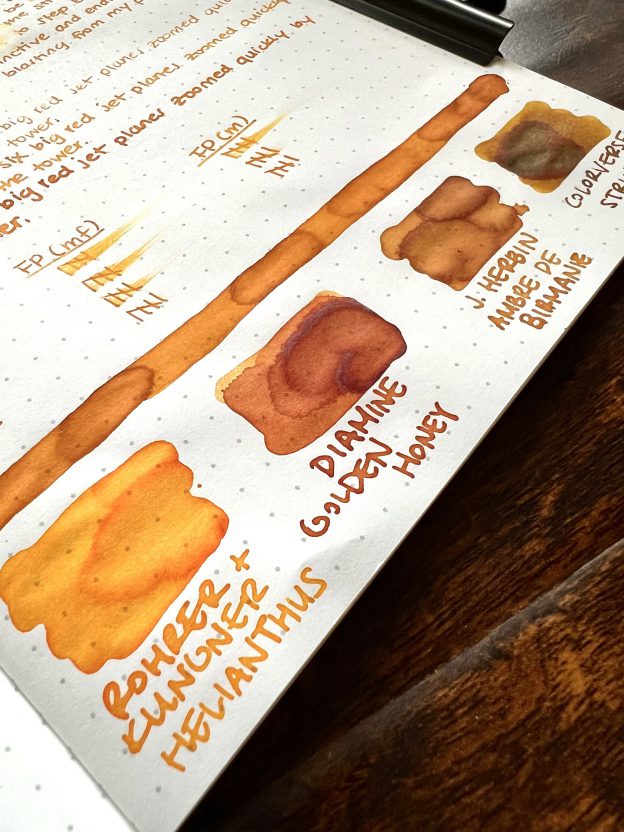 to step
and
blasting from my
big red jet planes zoomed
tower.
six big red jet planes zoomed quickly
the tower
big red jet planes zoomed quickly by
FP (m)
FP (mf)
COLORVERSE
J. HERBIN
AMBRE DE
BIRMANIE
DIAMINE
GOLDEN
HONEY
ROHRER +
KLINGNER
HELIANTHUS